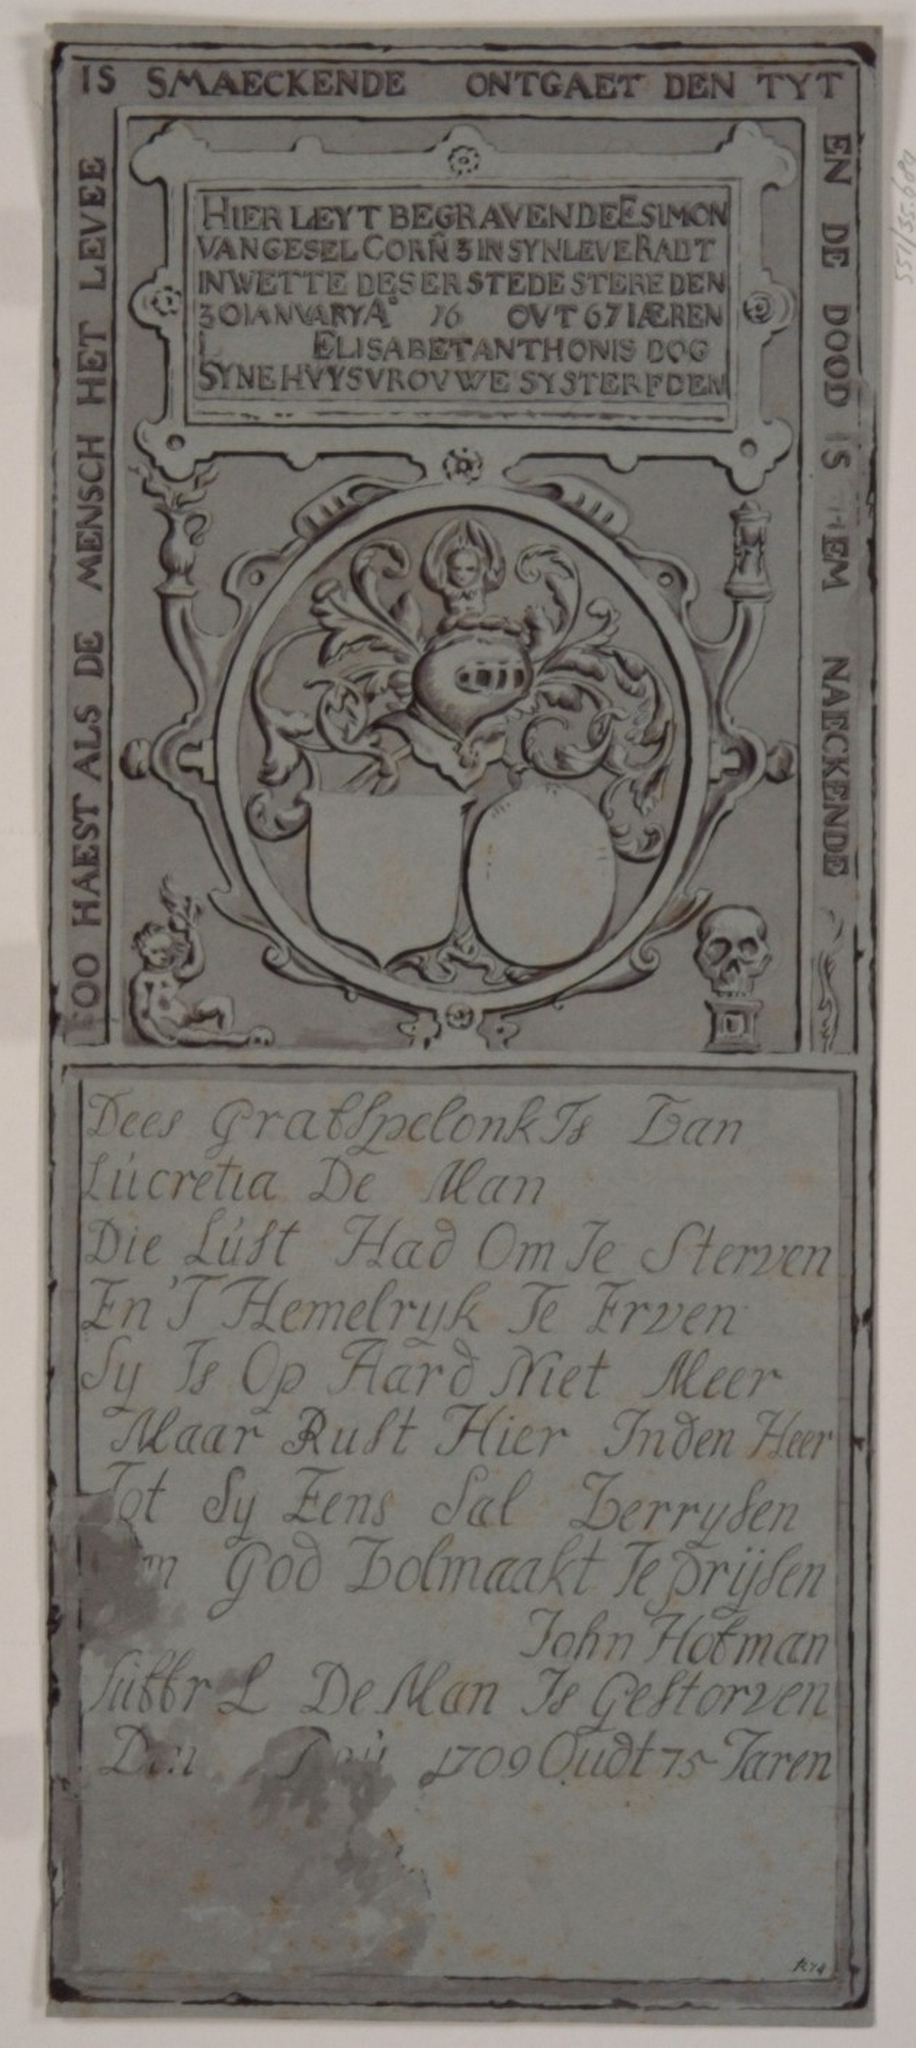 OO HAEST ALS DE MENSCH HET LEVEE
IS SMAECKENDE ONTGAET DEN TYT
EN DE DOOD IS HEM NAECKENDE
HIER LEYT BEGRAVEN DE E SIMON
VAN GESEL CORN̄ 3 IN SYN LEVE RADT
IN WETTE DESER STEDE STERE DEN
30 IANVARY A° 16 OVT 67 IÆREN
ELISABET ANTHONIS DOG
SYNE HVYSVROVWE SY STERF DEN
Dees Grafspelonk Is Van
Lucretia De Man
Die Lust Had Om Te Sterven
En 'T Hemelryk Te Erven
Sy Is Op Aard Niet Meer
Maar Rust Hier Inden Heer
Tot Sy Eens Sal Verrysen
God Volmaakt Te prijsen
John Hofman
Juffr L De Man Is Gestorven
Den 1709 Oudt 75 Jaren